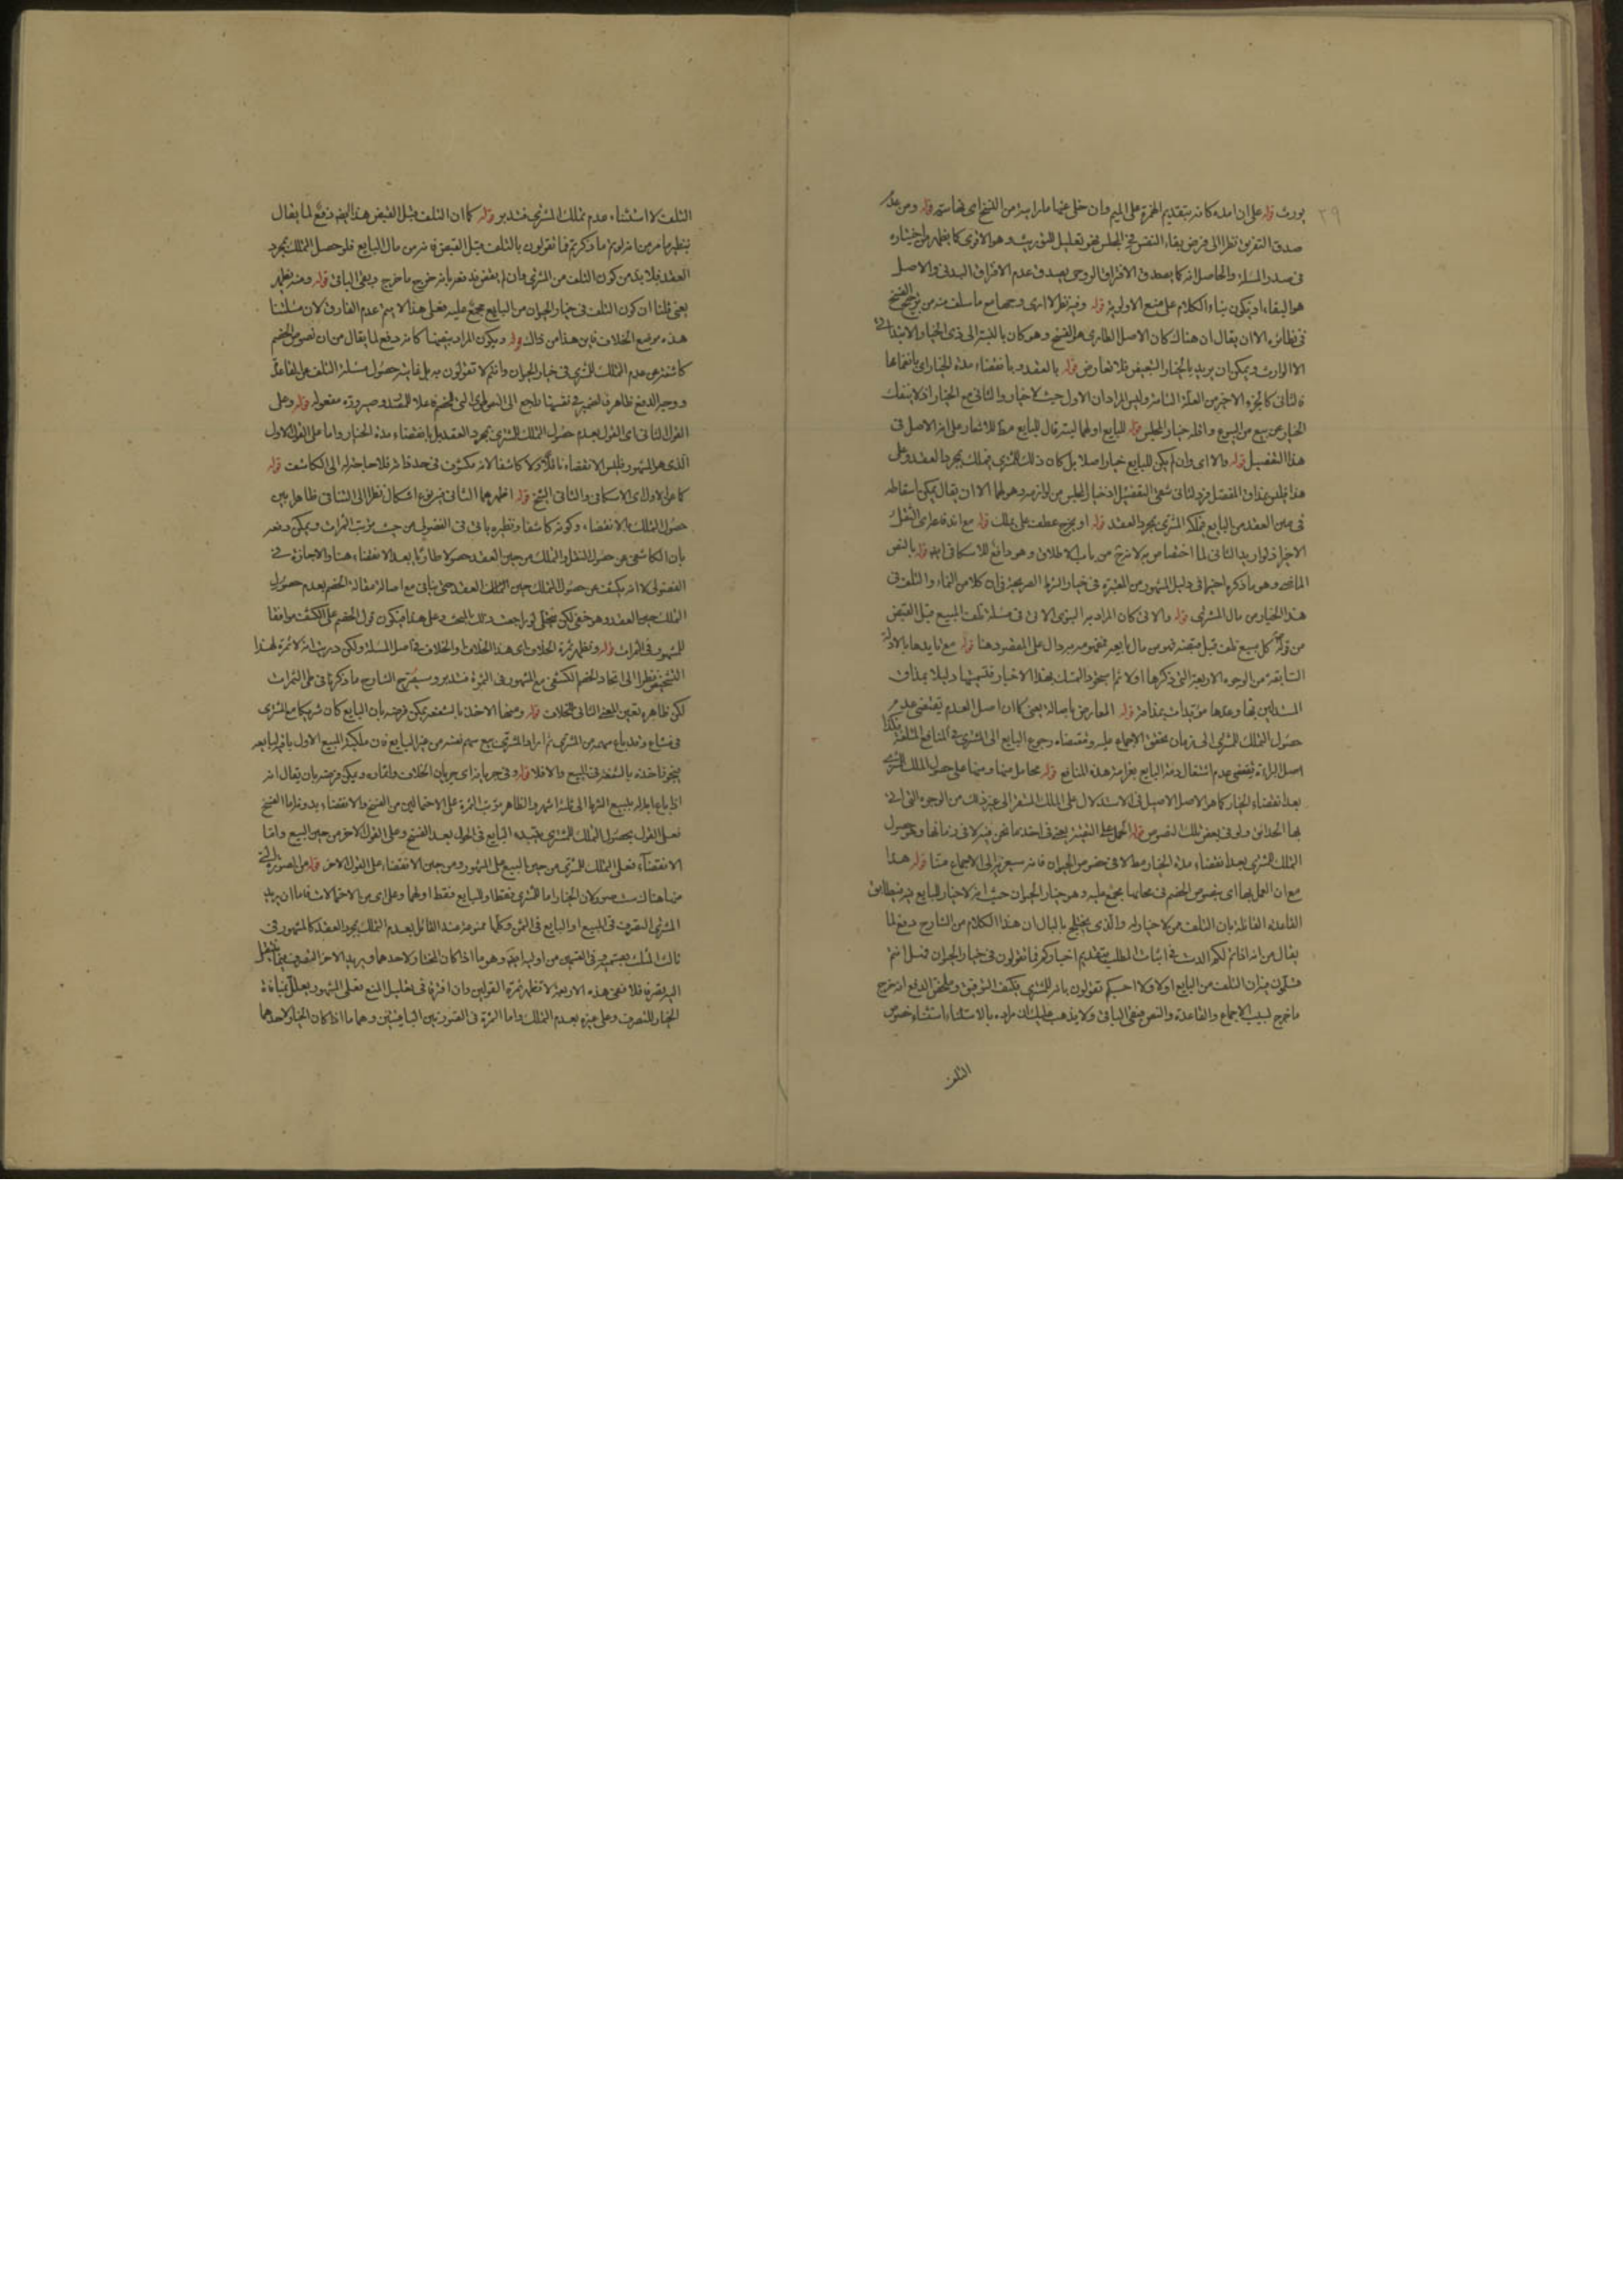 يورث قوله على ان امده كانه بتقديم الهمزة على الميم وان خلى عنها ما رايته من النسخ اى نهايته قوله ومن عدم
صدق التفرق نظرا الى فرض بقاء النفس في المجلس فهو تعليل للتوريث وهو الاقوى كما يظهر من اختياره
في صدر المسئلة والحاصل انه كما يصدق الافتراق الروحى يصدق عدم الافتراق البدنى والاصل
هو البقاء او يكون بناء الكلام على منع الاولوية قوله وفيه نظر لا ارى وجها مع ما سلف منه من ترجيح الفسخ
في نظائره الا ان يقال ان هناك كان الاصل الطارى هو الفسخ وهو كان بالنسبة الى ذى الخيار الابتدائى
لا الوارث ويمكن ان يريد بالخيار التبعيض فلا تعارض قوله بالعقد وبانقضاء مدة الخيار اى بانضمامها
فالثانى كالجزء الاخير من العلة التامة وليس المراد ان الاول حيث لا خيار والثانى مع الخيار اذ لا ينفك
الخيار عن بيع من البيوع واقله خيار المجلس قوله للبايع او لهما ليته قال للبايع مط للاشعار على انه الاصل في
هذا التفصيل قوله والا اى وان لم يكن للبايع خيار اصلا بل كان ذلك للمشترى فيملك بمجرد العقد وعلى
هذا فليس بمذاق المفصل فرد لثانى شقى التفصيل اذ خيار المجلس من لوازمه وهو لهما الا ان يقال يمكن اسقاطه
في متن العقد من البايع فيملكه المشترى بمجرد العقد قوله او يخرج عطف على يملك قوله مع انه قاعدا عن النقل
هذا الخيار من مال المشترى قوله والا في كان المراد به النبوى الاتى في مسئلة تلف المبيع قبل القبض
من قوله كل مبيع تلف قبل قبضه فهو من مال بايعه فمفهومه دال على المقصود هنا قوله مع تايدها بالادلة
السابقة من الوجوه الاربعة التى ذكرها اولا ثم يجوز التمسك بهذا الاخبار فتسميتها دليلا بمذاق
المستدلين بها وعدها مؤيدات بمذاقه قوله المعارض باصالة يعنى كما ان اصل العدم يقتضى عدم
حصول التملك للمشترى الى زمان تحقق الاجماع عليه ومقتضاه رجوع البايع الى المشترى في المنافع المتلفة فكذا
اصل البراءة يقتضى عدم اشتغال ذمة البايع بغرامة هذه المنافع قوله محامل منها ومنها على حصول الملك للمشترى
بعد انقضاء الخيار كما هو الاصل الاصيل في الاستدلال على الملك المستقر الى غير ذلك من الوجوه التى اتى
بها الحدائق ولو في بعض تلك النصوص قوله الحمل على التقية يعنى في احدها نحن فيه لا في زمانها وهو حصول
الملك للمشترى بعد انقضاء مدة الخيار مط لا في خصوص الحيوان فانه سيعزيه الى الاجماع منا قوله هذا
مع ان العمل بها اى بنصوص الخصم في محالها مجمع عليه وهو خيار الحيوان حيث انه لا خيار للبايع فيه فيطابق
القاعدة القائلة بان التلف ممن لا خيار له والذى يختلج بالبال ان هذا الكلام من الشارح دفع لما
يقال من انه اذا تم لكم الدست في اثبات المطلب بتقديم اخباركم فما تقولون في خيار الحيوان فهل انتم
مسلمون فيه ان التلف من البايع اولا فلا احسبكم تقولون بانه للمشترى فكيف التوفيق وملخص الدفع انه خرج
ما خرج لسبب الاجماع والقاعدة والنص فبقى الباقى ولا يذهب عليك ان مراده بالاستثناء استثناء خصوص
التلف
التلف لا استثناء عدم تملك المشترى فتدبر قوله كما ان التلف قبل القبض هذا ايضا دفع لما يقال
بنظير ما مر من انه لو تم ما ذكرتم فما تقولون بالتلف قبل القبض فانه من مال البايع فلو حصل التملك بمجرد
العقد فلا بد من كون التلف من المشترى وان لم يقبض فدفعه بانه خرج ما خرج وبقى الباقى قوله ومنه يظهر
يعنى قلنا ان كون التلف في خيار الحيوان من البايع مجمع عليه فعلى هذا لا يتم عدم الفارق لان مسئلتنا
هذه موضع الخلاف فاين هذا من ذاك قوله ويكون المراد بتضمنها كانه دفع لما يقال من ان نصوص الخصم
كاشفة عن عدم التملك للمشترى في خيار الحيوان وانتم لا تقولون به بل غايته حصول مسئلة التلف على القاعدة
ووجه الدفع ظاهر فالضمير في تضمنها راجع الى النصوص
القول الثانى اى القول بعدم حصول التملك للمشترى بمجرد العقد بل بانقضاء مدة الخيار واما على القول الاول
الذى هو المشهور فليس الانقضاء ناقلا ولا كاشفا لانه مكشوف في حد ذاته فلا حاجة له الى الكاشف قوله
كما عن الاول اى الاسكافى والثانى الشيخ قوله اظهرهما الثانى فيه نوع اشكال نظرا الى التنافى ظاهرا بين
حصول التملك بالانقضاء وكونه كاشفا ونظيره ياتى في الفضولى من حيث ترتب الثمرات ويمكن دفعه
بان الكاشفى عن حصول النقل والتملك من حين العقد حصولا طاريا بعد الانقضاء هنا والاجازة في
الفضولى لا انه يكشف عن حصول التملك حين العقد حتى ينافى مع اصالة مقالة الخصم بعدم حصول
التملك حين العقد وهو خفى لكن يتجلى لو راجعت ذلك المبحث وعلى هذا فيكون قول الخصم على الكشف موافقا
للمشهور في الثمرات قوله وتظهر ثمرة الخلاف اى هذا الخلاف او الخلاف في اصل المسئلة ولكن دريت انه لا ثمرة لهذا
التشخيص نظرا الى اتحاد الخصم الكشفى مع المشهور في الثمرة فتدبر وسيصرح الشارح ما ذكرنا في طى الثمرات
لكن ظاهره تعين المعنى الثانى للخلاف قوله ومنها الاخذ بالشفعة يمكن فرضه بان البايع كان شريكا مع المشترى
اذا باع ما بدا له بمبيع الثريا الى ثلثة اشهر والظاهر ترتب الثمرة على الاحتمالين من الفسخ والانقضاء بدونه اما الفسخ
فعلى القول بحصول الملك للمشترى يبتدء البايع في الحول بعد الفسخ وعلى القول الاخر من حين البيع واما
الانقضاء فعلى التملك للمشترى من حين البيع على المشهور ومن حين الانقضاء على القول الاخر
منها هنا ست صور لان الخيار اما للمشترى فقط او للبايع فقط او لهما وعلى اى من الاحتمالات فاما ان يريد
المشترى التصرف في المبيع او البايع في الثمن وكلها ممنوعة عند القائل بعدم التملك بمجرد العقد كالمشهور في
اليه تصرفا فلا ففى هذه الاربعة لا تظهر ثمرة القولين وان افترقا في تعليل المنع فعلى المشهور يعلل بمنافاة
الخيار للتصرف وعلى غيره بعدم التملك واما الثمرة في الصورتين الباقيتين وهما ما اذا كان الخيار لاحدهما